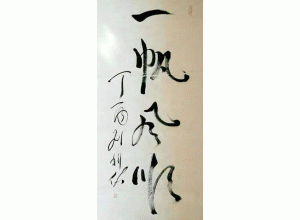 一帆风顺
丁酉